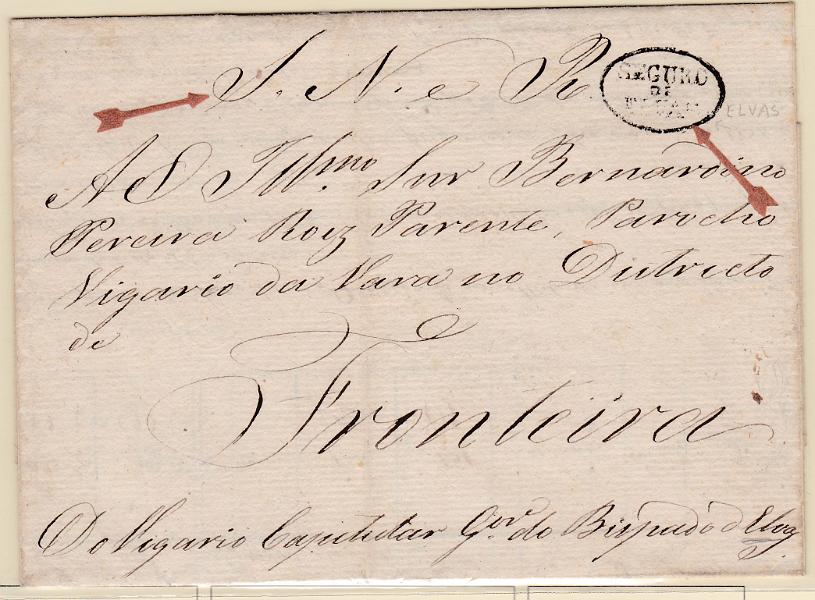 S. N. e R.
SEGURO
DE
ELVAS
ELVAS
Ao Illmo Snr Bernardino
Pereira Roiz Parente, Parocho
Vigario da Vara no Districto
de
Fronteira
Do Vigario Capitular Gov.or do Bispado d'Elvas